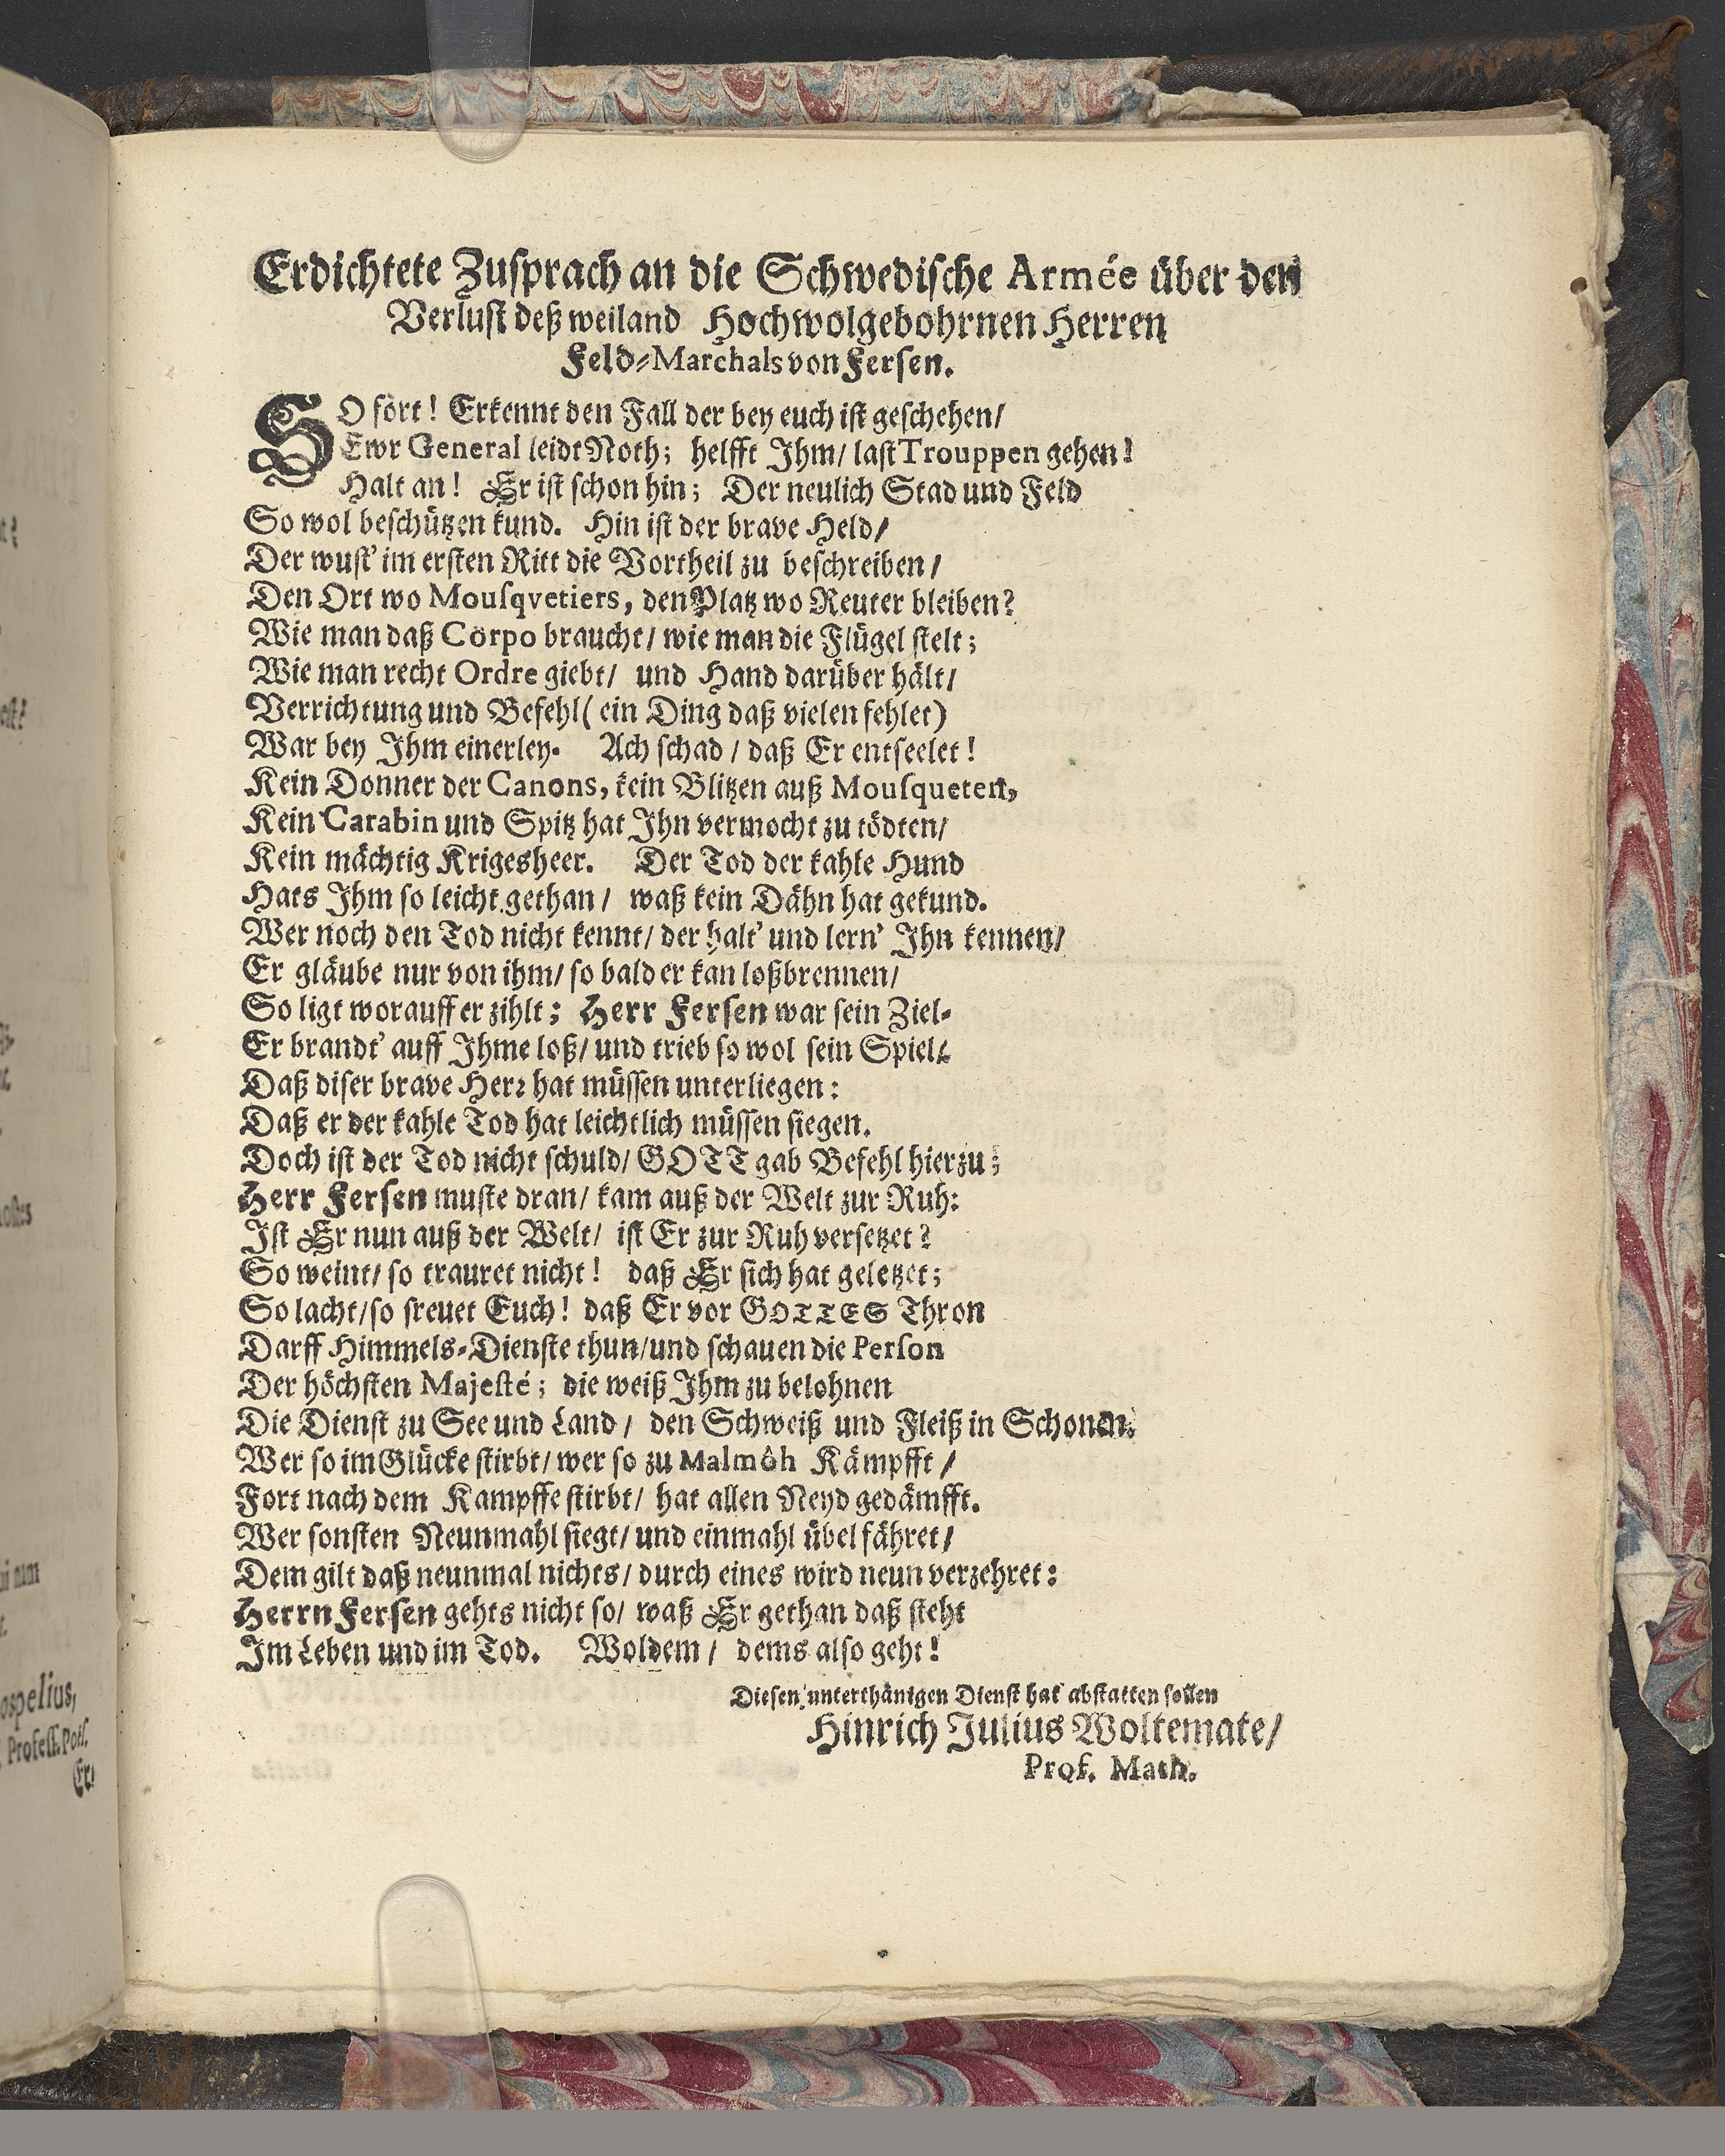 Erdichtete Zusprach an die Schwedische Armée über den
Verlust deß weiland Hochwolgebohrnen Herren
Feld-Marchals von Fersen.
SO fort! Erkennt den Fall der bey euch ist geschehen/
Ewr General leidt Noth; helfft Ihm/ last Trouppen gehen!
Halt an! Er ist schon hin; Der neulich Stad und Feld
So wol beschützen kund. Hin ist der brave Held/
Der wust' im ersten Ritt die Vortheil zu beschreiben/
Den Ort wo Mousqvetiers, den Platz wo Reuter bleiben?
Wie man daß Corpo braucht/ wie man die Flügel stelt;
Wie man recht Ordre giebt/ und Hand darüber hält/
Verrichtung und Befehl (ein Ding daß vielen fehlet)
War bey Ihm einerley. Ach schad/ daß Er entseelet!
Kein Donner der Canons, kein Blitzen auß Mousqueten,
Kein Carabin und Spitz hat Ihn vermocht zu tödten/
Kein mächtig Krigesheer. Der Tod der kahle Hund
Hats Ihm so leicht gethan/ waß kein Dähn hat gekund.
Wer noch den Tod nicht kennt/ der halt' und lern' Ihn kennen/
Er gläube nur von ihm/ so bald er kan loßbrennen/
So ligt worauff er zihlt; Herr Fersen war sein Ziel-
Er brandt' auff Ihme loß/ und trieb so wol sein Spiel/
Daß diser brave Herr hat müssen unterliegen:
Daß er der kahle Tod hat leichtlich müssen siegen.
Doch ist der Tod nicht schuld/ GOTT gab Befehl hierzu;
Herr Fersen muste dran/ kam auß der Welt zur Ruh:
Ist Er nun auß der Welt/ ist Er zur Ruh versetzet?
So weint/ so trauret nicht! daß Er sich hat geletzet;
So lacht/ so freuet Euch! daß Er vor GOTTES Thron
Darff Himmels-Dienste thun/ und schauen die Person
Der höchsten Majesté; die weiß Ihm zu belohnen
Die Dienst zu See und Land/ den Schweiß und Fleiß in Schonen.
Wer so im Glücke stirbt/ wer so zu Malmöh Kämpfft/
Fort nach dem Kampffe stirbt/ hat allen Neyd gedämfft.
Wer sonsten Neunmahl siegt/ und einmahl übel fähret/
Dem gilt daß neunmal nichts/ durch eines wird neun verzehret:
Herrn Fersen gehts nicht so/ waß Er gethan daß steht
Im Leben und im Tod. Woldem/ dems also geht!
Diesen unterthänigen Dienst hat abstatten sollen
Hinrich Julius Woltemate/
Prof. Math.